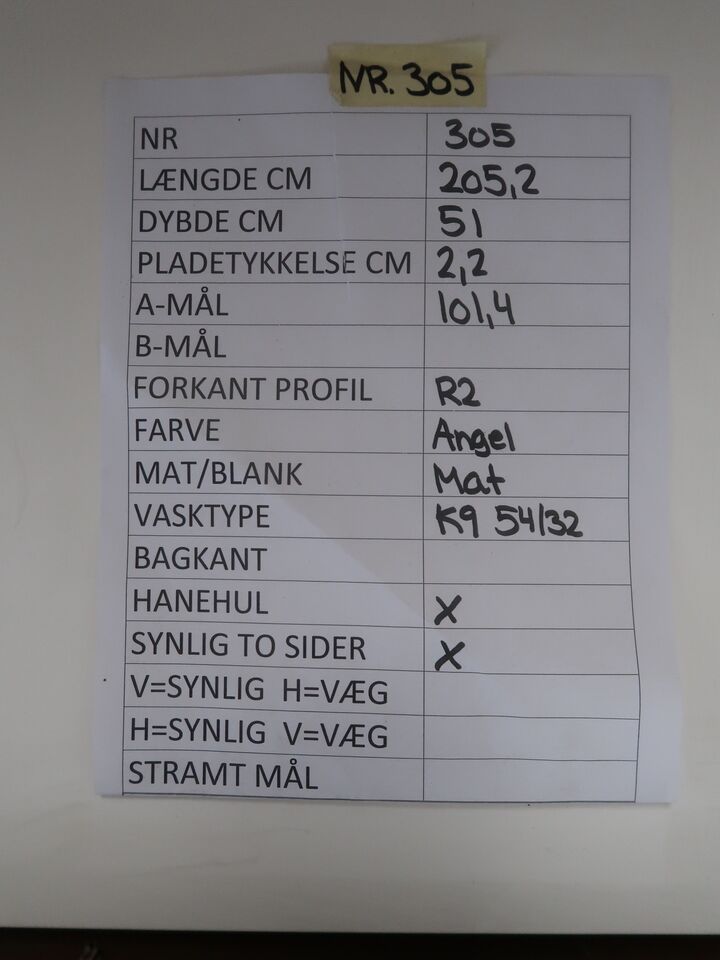 NR. 305
NR 305
LÆNGDE CM 205,2
DYBDE CM 51
PLADETYKKELSE CM 2,2
A-MÅL 101,4
B-MÅL
FORKANT PROFIL R2
FARVE Angel
MAT/BLANK Mat
VASKTYPE K9 54/32
BAGKANT
HANEHUL X
SYNLIG TO SIDER X
V=SYNLIG H=VÆG
H=SYNLIG V=VÆG
STRAMT MÅL